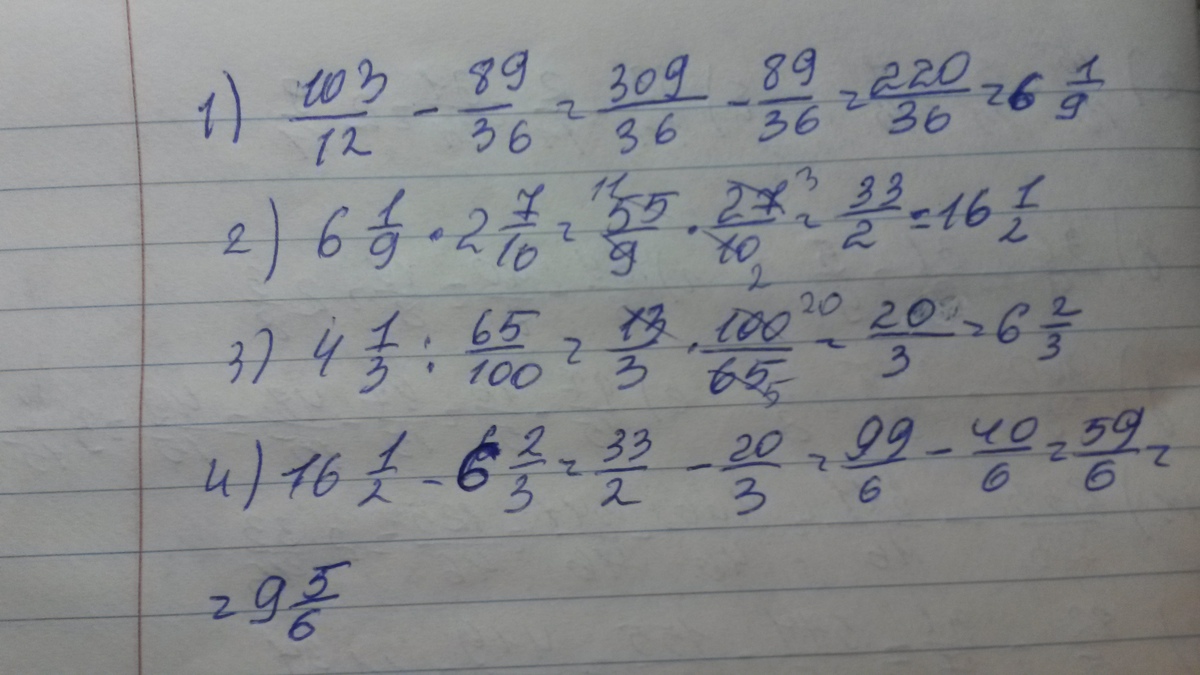 1) 103/12 - 89/36 = 309/36 - 89/36 = 220/36 = 6 1/9
2) 6 1/9 · 2 7/10 = 55/9 11 · 27/10 3 2 = 33/2 = 16 1/2
3) 4 1/3 : 65/100 = 13/3 · 100/65 20 5 = 20/3 = 6 2/3
4) 16 1/2 - 6 2/3 = 33/2 - 20/3 = 99/6 - 40/6 = 59/6 =
= 9 5/6